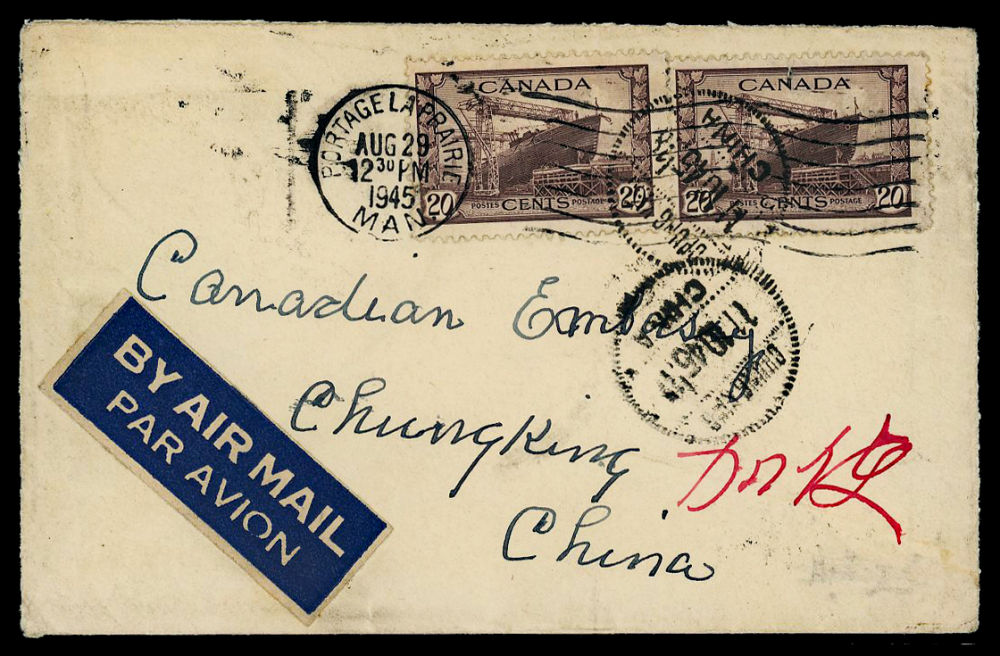 CANADA
CANADA
PORTAGE LA PRAIRIE
AUG 29
12 30 PM
1945
MAN
20 POSTES CENTS POSTAGE 20
20 POSTES CENTS POSTAGE 20
CHINA
Canadian Embassy
CHINA
Chungking
加使
China
BY AIR MAIL
PAR AVION